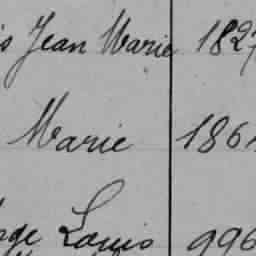 Jean Marie 1827
Marie 186
Louis 996